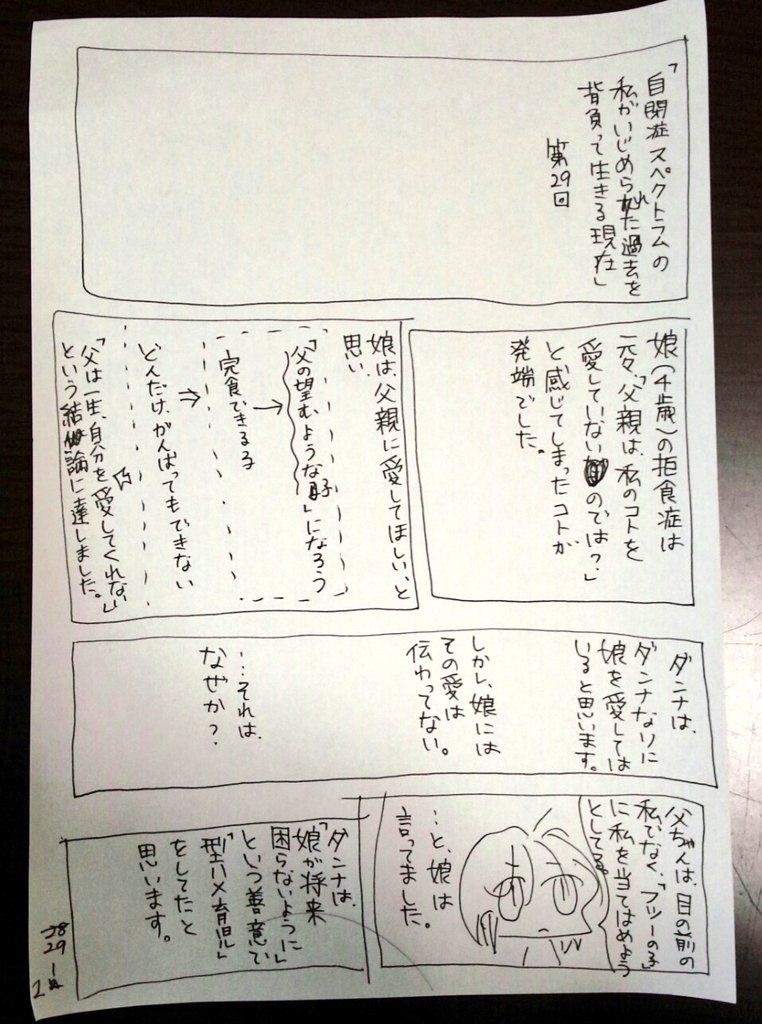 「自閉症スペクトラムの
私がいじめられた過去を
背負って生きる現在」
第29回
娘(4歳)の拒食症は
元々、「父親は、私のコトを
愛していないのでは?」
と感じてしまったコトが
発端でした。
娘は、父親に愛してほしい、と
思い、
「父の望むような子」になろう
→
完食できるる
⇒
どんだけ、がんばってもできない
⇒
「父は一生、自分を愛してくれない」
という結論に達しました。
ダンナは、
ダンナなりに
娘を愛しては
いると思います。
しかし、娘には
その愛は
伝わってない。
…それは、
なぜか?
父ちゃんは、目の前の
私でなく、「フツーの子」
に私を当てはめよう
としてる。
…と、娘は
言ってました。
ダンナは、
「娘が将来
困らないように」
という善意で
「型ハメ育児」
をしてたと
思います。
29